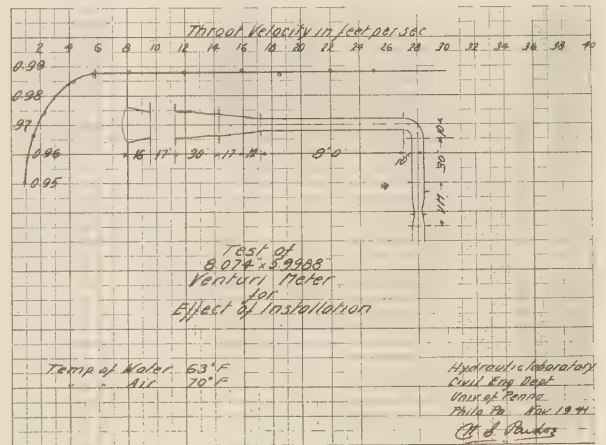 Throat Velocity in feet per sec
2 4 6 8 10 12 14 16 18 20 22 24 26 28 30 32 34 36 38 40
0.99
0.98
.97
0.96
0.95
16 17 30 17 12 8'-0
10" 30 VM
Test of
8.074" x 5.9988
Venturi Meter
for
Effect of Installation
Temp of Water 63°F
" " Air 70°F
Hydraulic laboratory
Civil Eng Dept
Univ of Penna
Phila Pa Nov 1941